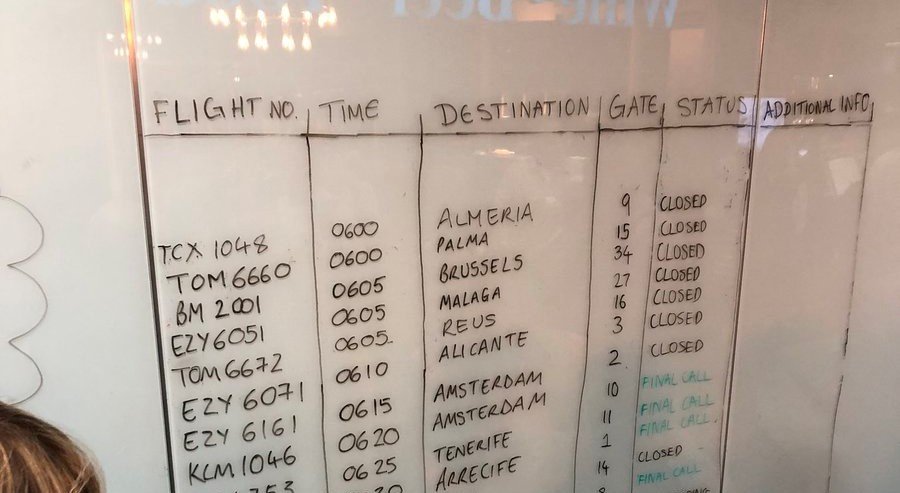 FLIGHT NO. TIME DESTINATION GATE STATUS ADDITIONAL INFO
TCX 1048 0600 ALMERIA 9 CLOSED
TOM6660 0600 PALMA 15 CLOSED
BM 2001 0605 BRUSSELS 34 CLOSED
EZY6051 0605 MALAGA 27 CLOSED
TOM6672 0605 REUS 16 CLOSED
EZY 6071 0610 ALICANTE 3 CLOSED
EZY 6161 0615 AMSTERDAM 2 CLOSED
KLM1046 0620 AMSTERDAM 10 FINAL CALL
0625 TENERIFE 11 FINAL CALL
ARRECIFE 1 FINAL CALL
14 CLOSED
8 FINAL CALL